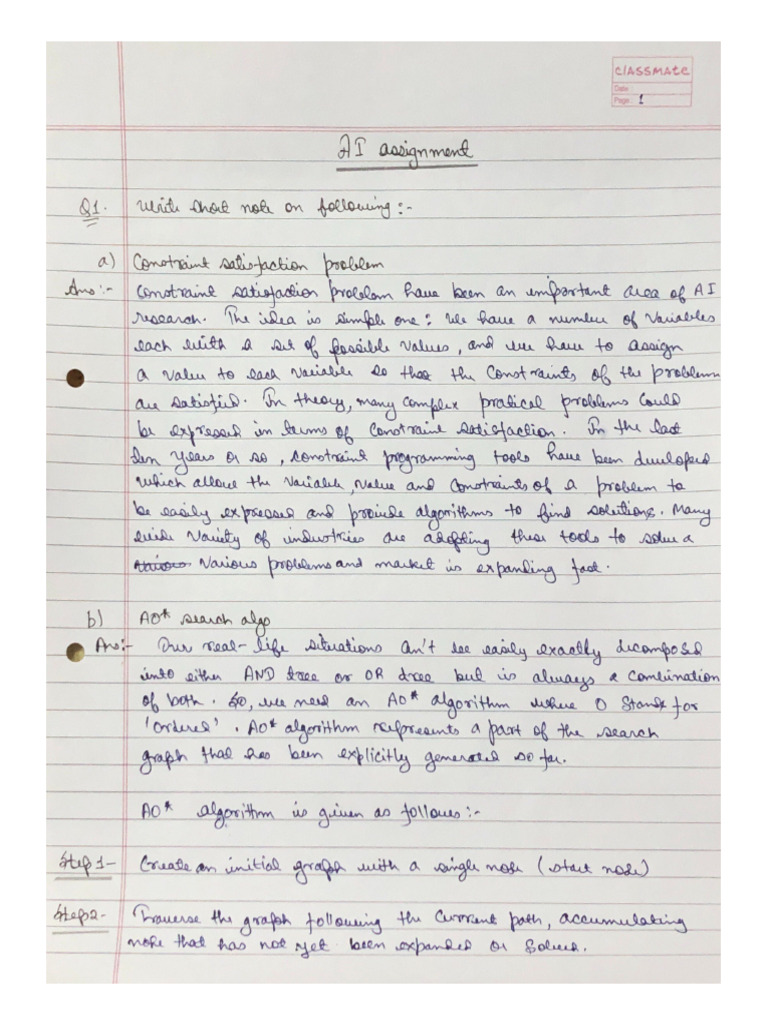 classmate
Date
Page 1
AI assignment
Q1. Write short note on following:-
a) Constraint satisfaction problem
Ans:- Constraint satisfaction problem have been an important area of AI
research. The idea is simple one: We have a number of variables
each with a set of possible values, and we have to assign
a value to each variable so that the constraints of the problem
are satisfied. In theory, many complex pratical problems could
be expressed in terms of constraint satisfaction. In the last
ten years or so, constraint programming tools have been developed
which allow the variable, value and constraints of a problem to
be easily expressed and provide algorithms to find solutions. Many
wide variety of industries are adopting these tools to solve a
various problems and market is expanding fast.
b) AO* search algo
Ans:- Our real-life situations can't be easily exactly decomposed
into either AND tree or OR tree but is always a combination
of both. So, we need an AO* algorithm where O stands for
'ordered'. AO* algorithm represents a part of the search
graph that has been explicitly generated so far.
AO* algorithm is given as follows:-
Step 1- Create an initial graph with a single node (start node)
Step 2- Traverse the graph following the current path, accumulating
node that has not yet been expanded or solved.